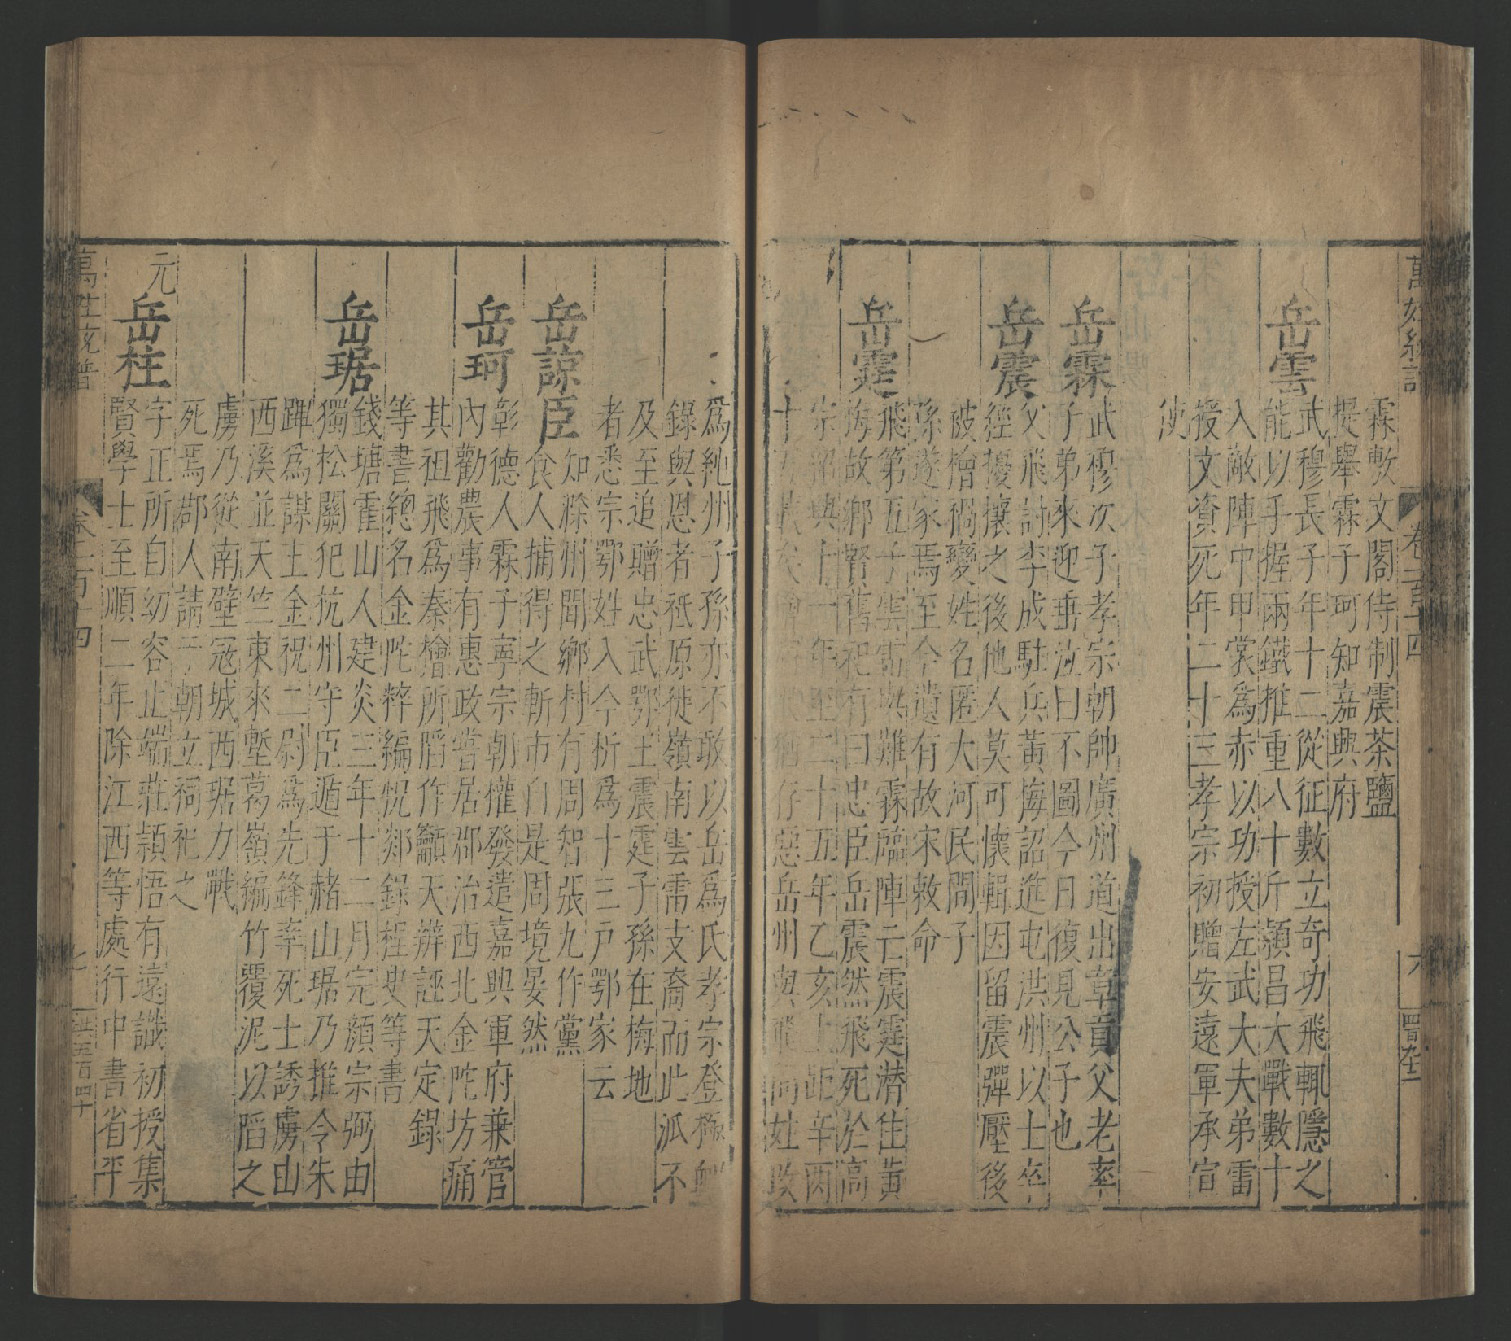 霖敷文閣待制震茶鹽
提舉霖子珂知嘉興府
岳雲
武穆長子年十二從征數立奇功飛輒隱之
能以手握兩鐵椎重八十斤潁昌大戰數十
入敵陣中甲裳爲赤以功授左武大夫弟雷
授文資死年二十三孝宗初贈安遠軍承宣
使
岳霖
武穆次子孝宗朝帥廣州道出章貢父老率
子弟來迎垂泣曰不圖今日復見公子也
岳震
父飛討李成駐兵黃梅詔進屯洪州以士卒
經擾攘之後他人莫可懷輯因留震彈壓後
被檜禍變姓名匿大河民間子
孫遂家焉至今遺有故宋敕命
岳霆
飛第五子雲雷與難霖臨陣亡震霆潛住黃
梅故鄉賢舊祀有曰忠臣岳震然飛死於高
宗紹興十一年至二十五年乙亥上距辛酉
十五 岳州與飛同姓改
爲純州子孫亦不敢以岳爲氏孝宗登極
錄與恩者祗原徒嶺南雲雷支裔而此派不
及至追贈忠武鄂王震霆子孫在梅地
者悉宗鄂姓入今析爲十三戸鄂家云
岳諒臣
知滁州聞鄉村有周智張九作黨
食人捕得之斬市自是周境晏然
岳珂
彰德人霖子寧宗朝權發遣嘉興軍府兼管
內勸農事有惠政嘗居郡治西北金陀坊痛
其祖飛爲秦檜所陷作籲天辨誣天定錄
等書總名金陀粹編悅郯錄桯史等書
岳琚
錢塘霍山人建炎三年十二月完顏宗弼由
獨松關犯杭州守臣遁于赭山琚乃推令朱
蹕爲謀主金祝二尉爲先鋒率死士誘虜山
西溪並天竺東來塹葛嶺編竹覆泥以陷之
虜乃從南壁冦城西琚力戰
死焉鄰人請于朝立祠祀之
元
岳柱
字正所自幼容止端莊穎悟有遠識初授集
賢學士至順二年除江西等處行中書省平
萬姓統譜
卷一百十四